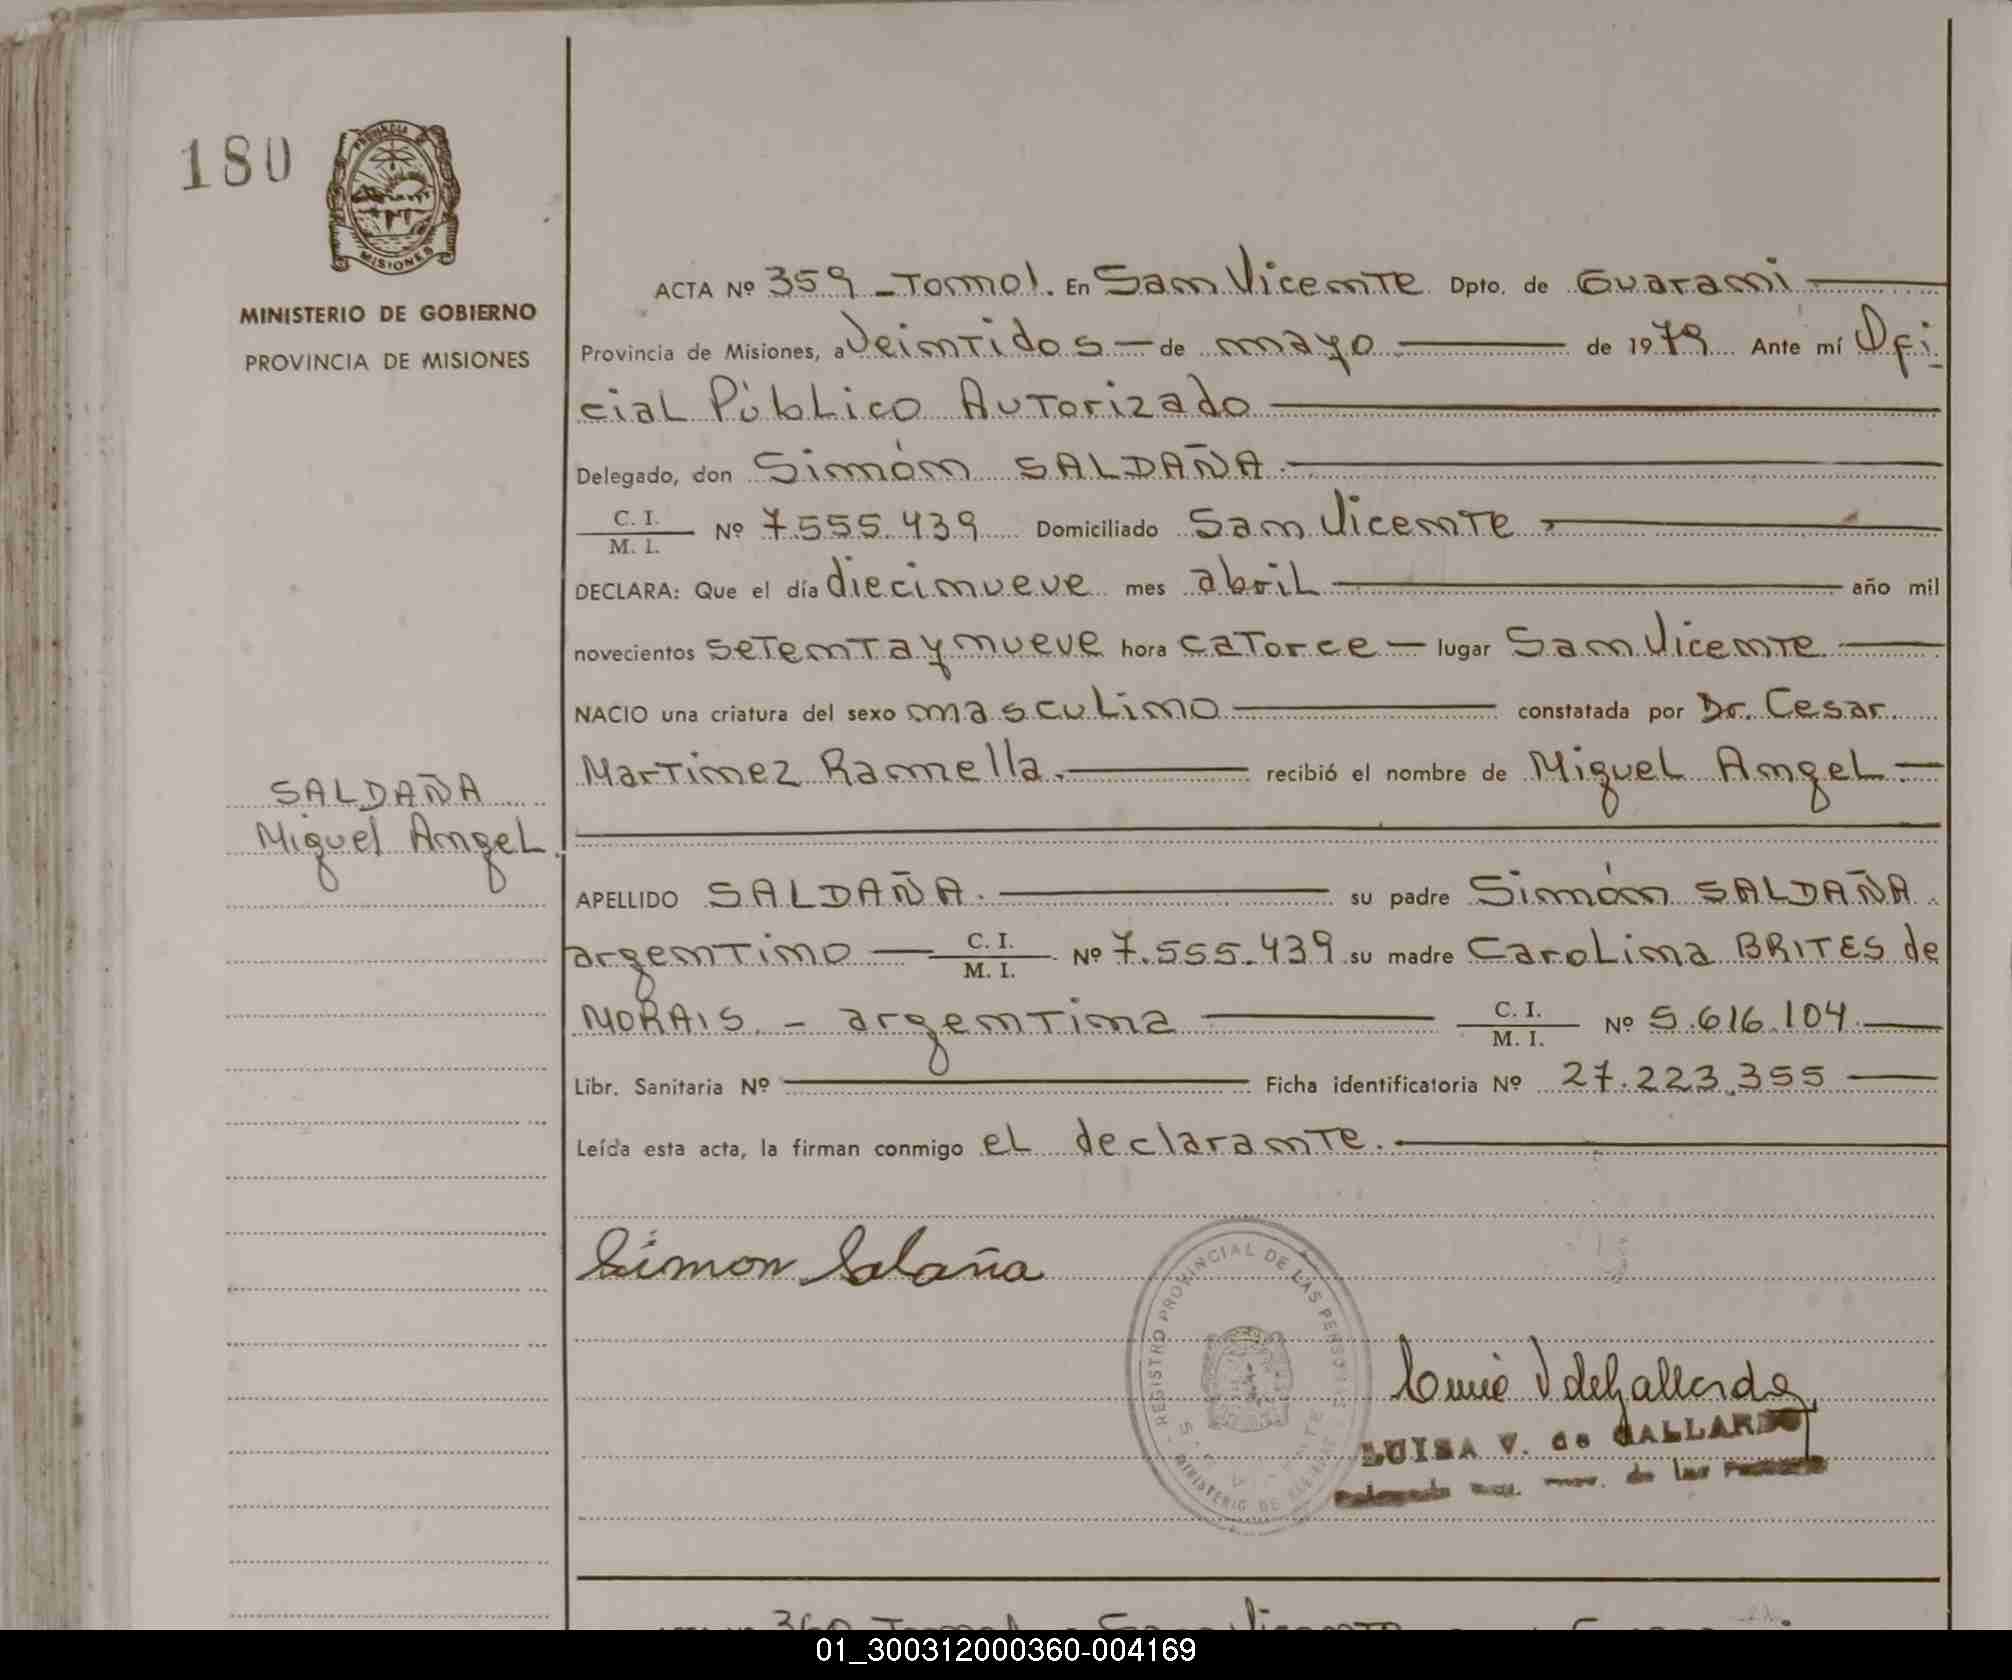 180
PROVINCIA
MISIONES
MINISTERIO DE GOBIERNO
PROVINCIA DE MISIONES
SALDAÑA
Miguel Angel
ACTA Nº 359 - Tomo I. En San Vicente Dpto. de Guarani
Provincia de Misiones, a Veintidos — de mayo — de 1979 Ante mí Ofi
cial Público Autorizado
Delegado, don Simón SALDAÑA.
C. I.
M. I. Nº 7.555.439 Domiciliado San Vicente
DECLARA: Que el día diecinueve mes abril — año mil
novecientos setenta y nueve hora catorce — lugar San Vicente
NACIO una criatura del sexo masculino — constatada por Dr. Cesar
Martinez Ramella. — recibió el nombre de Miguel Angel —
APELLIDO SALDAÑA. — su padre Simón SALDAÑA
argentino — C. I. M. I. Nº 7.555.439 su madre Carolina BRITES de
MORAIS. - argentina — C. I. M. I. Nº 5.616.104 —
Libr. Sanitaria Nº — Ficha identificatoria Nº 27.223.355 —
Leída esta acta, la firman conmigo el declarante.
Simon Salaña
REGISTRO PROVINCIAL DE LAS PERSONAS
MINISTERIO DE
LUISA V. de GALLARDO
de las
360 Tomo I San Vicente
01_300312000360-004169